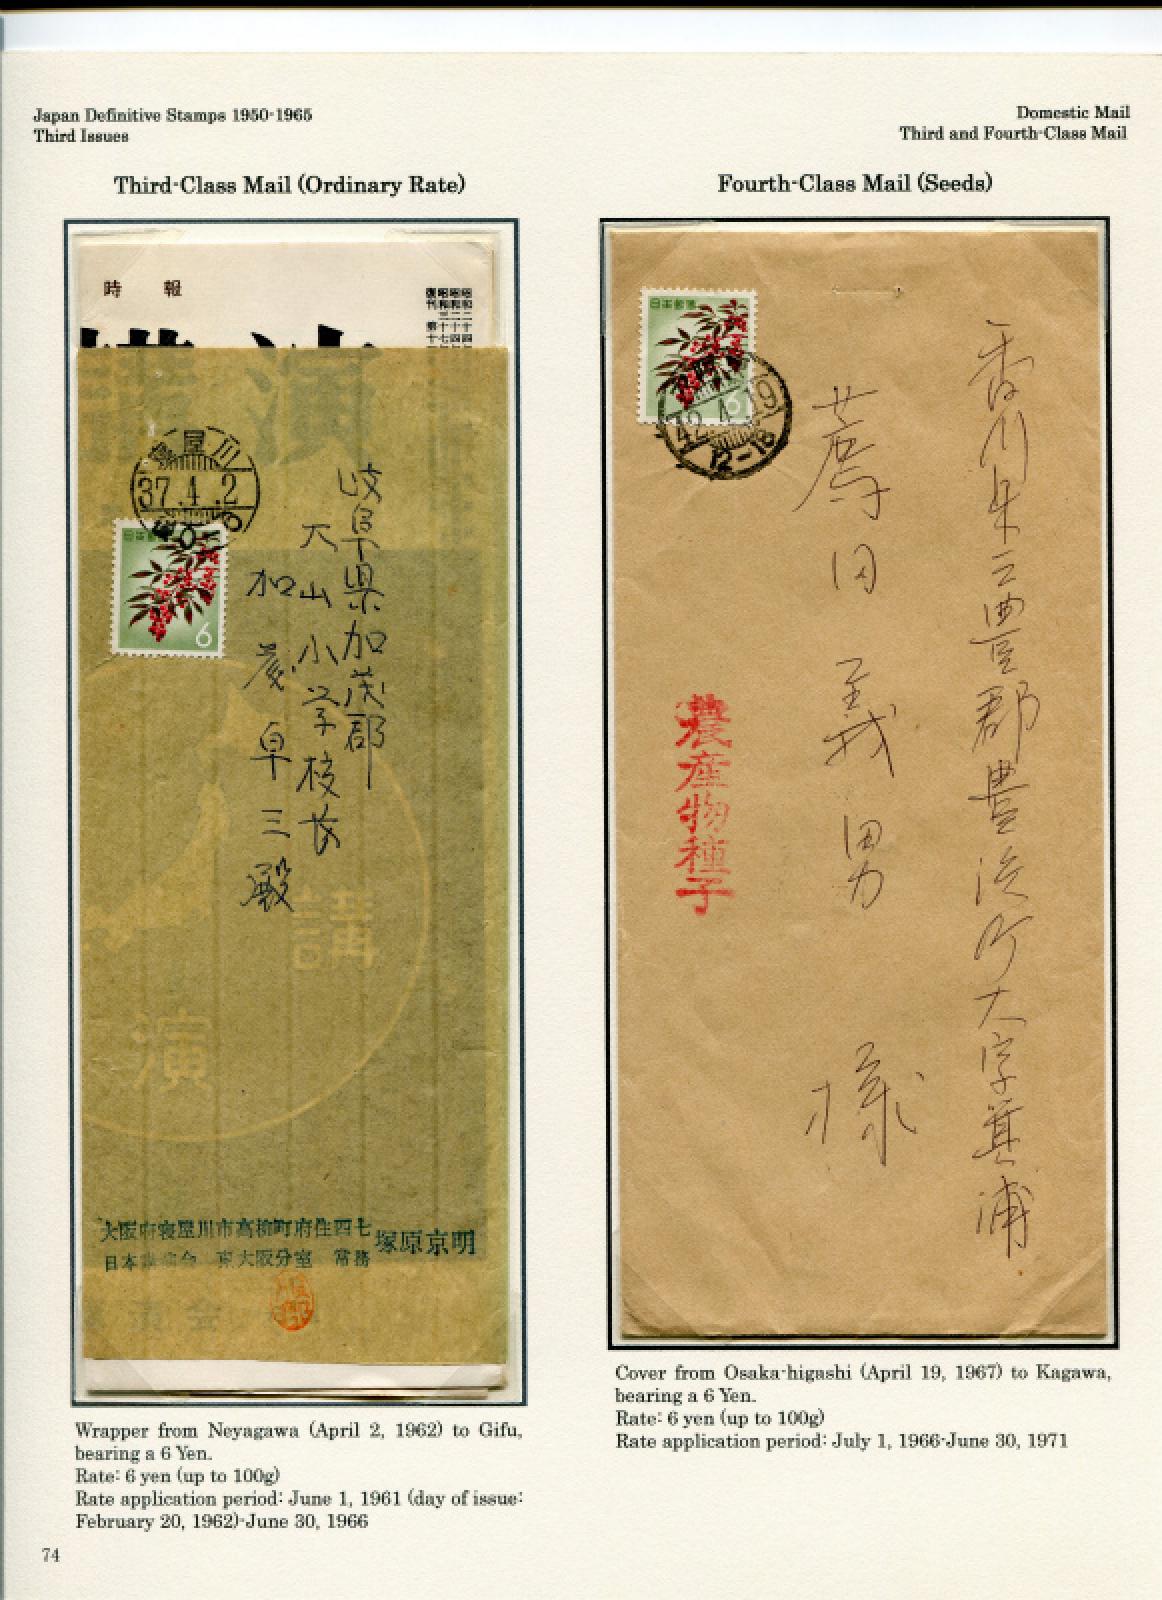 Japan Definitive Stamps 1950-1965
Third Issues
Domestic Mail
Third and Fourth-Class Mail
Third-Class Mail (Ordinary Rate)
時報
講演
屋川
37.4.2
日本郵便
6
岐阜県加茂郡
大山小学校長
加茂卓三殿
講
演
大阪府寝屋川市高柳町府住四七
日本講演会 東大阪分室 常務
塚原京明
Wrapper from Neyagawa (April 2, 1962) to Gifu,
bearing a 6 Yen.
Rate: 6 yen (up to 100g)
Rate application period: June 1, 1961 (day of issue:
February 20, 1962)-June 30, 1966
Fourth-Class Mail (Seeds)
日本郵便
6
42.4.19
12-18
香川県三豊郡豊浜町大字箕浦
薦田義男様
農産物種子
Cover from Osaka-higashi (April 19, 1967) to Kagawa,
bearing a 6 Yen.
Rate: 6 yen (up to 100g)
Rate application period: July 1, 1966-June 30, 1971
74